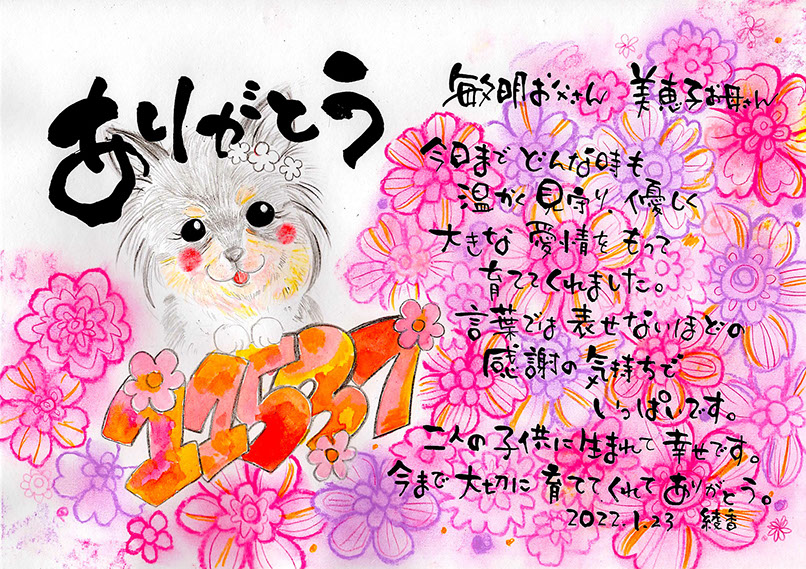 ありがとう
敏明お父さん 美恵子お母さん
今日まで どんな時も
温かく見守り、優しく
大きな愛情をもって
育ててくれました。
言葉では表せないほどの
感謝の気持ちで
いっぱいです。
二人の子供に生まれて幸せです。
今まで大切に育ててくれてありがとう。
2022.1.23 綾香
11537